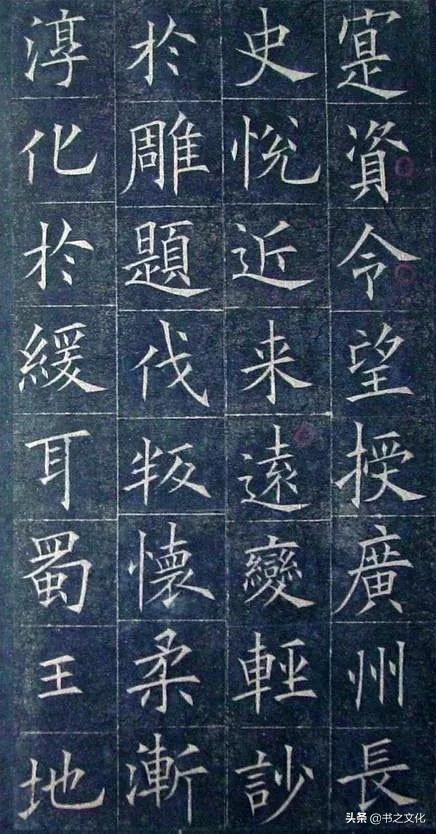 寔資令望授廣州長
史悅近来遠變輕訬
於雕題伐叛懷柔漸
淳化於緩耳蜀王地
头条@书之文化